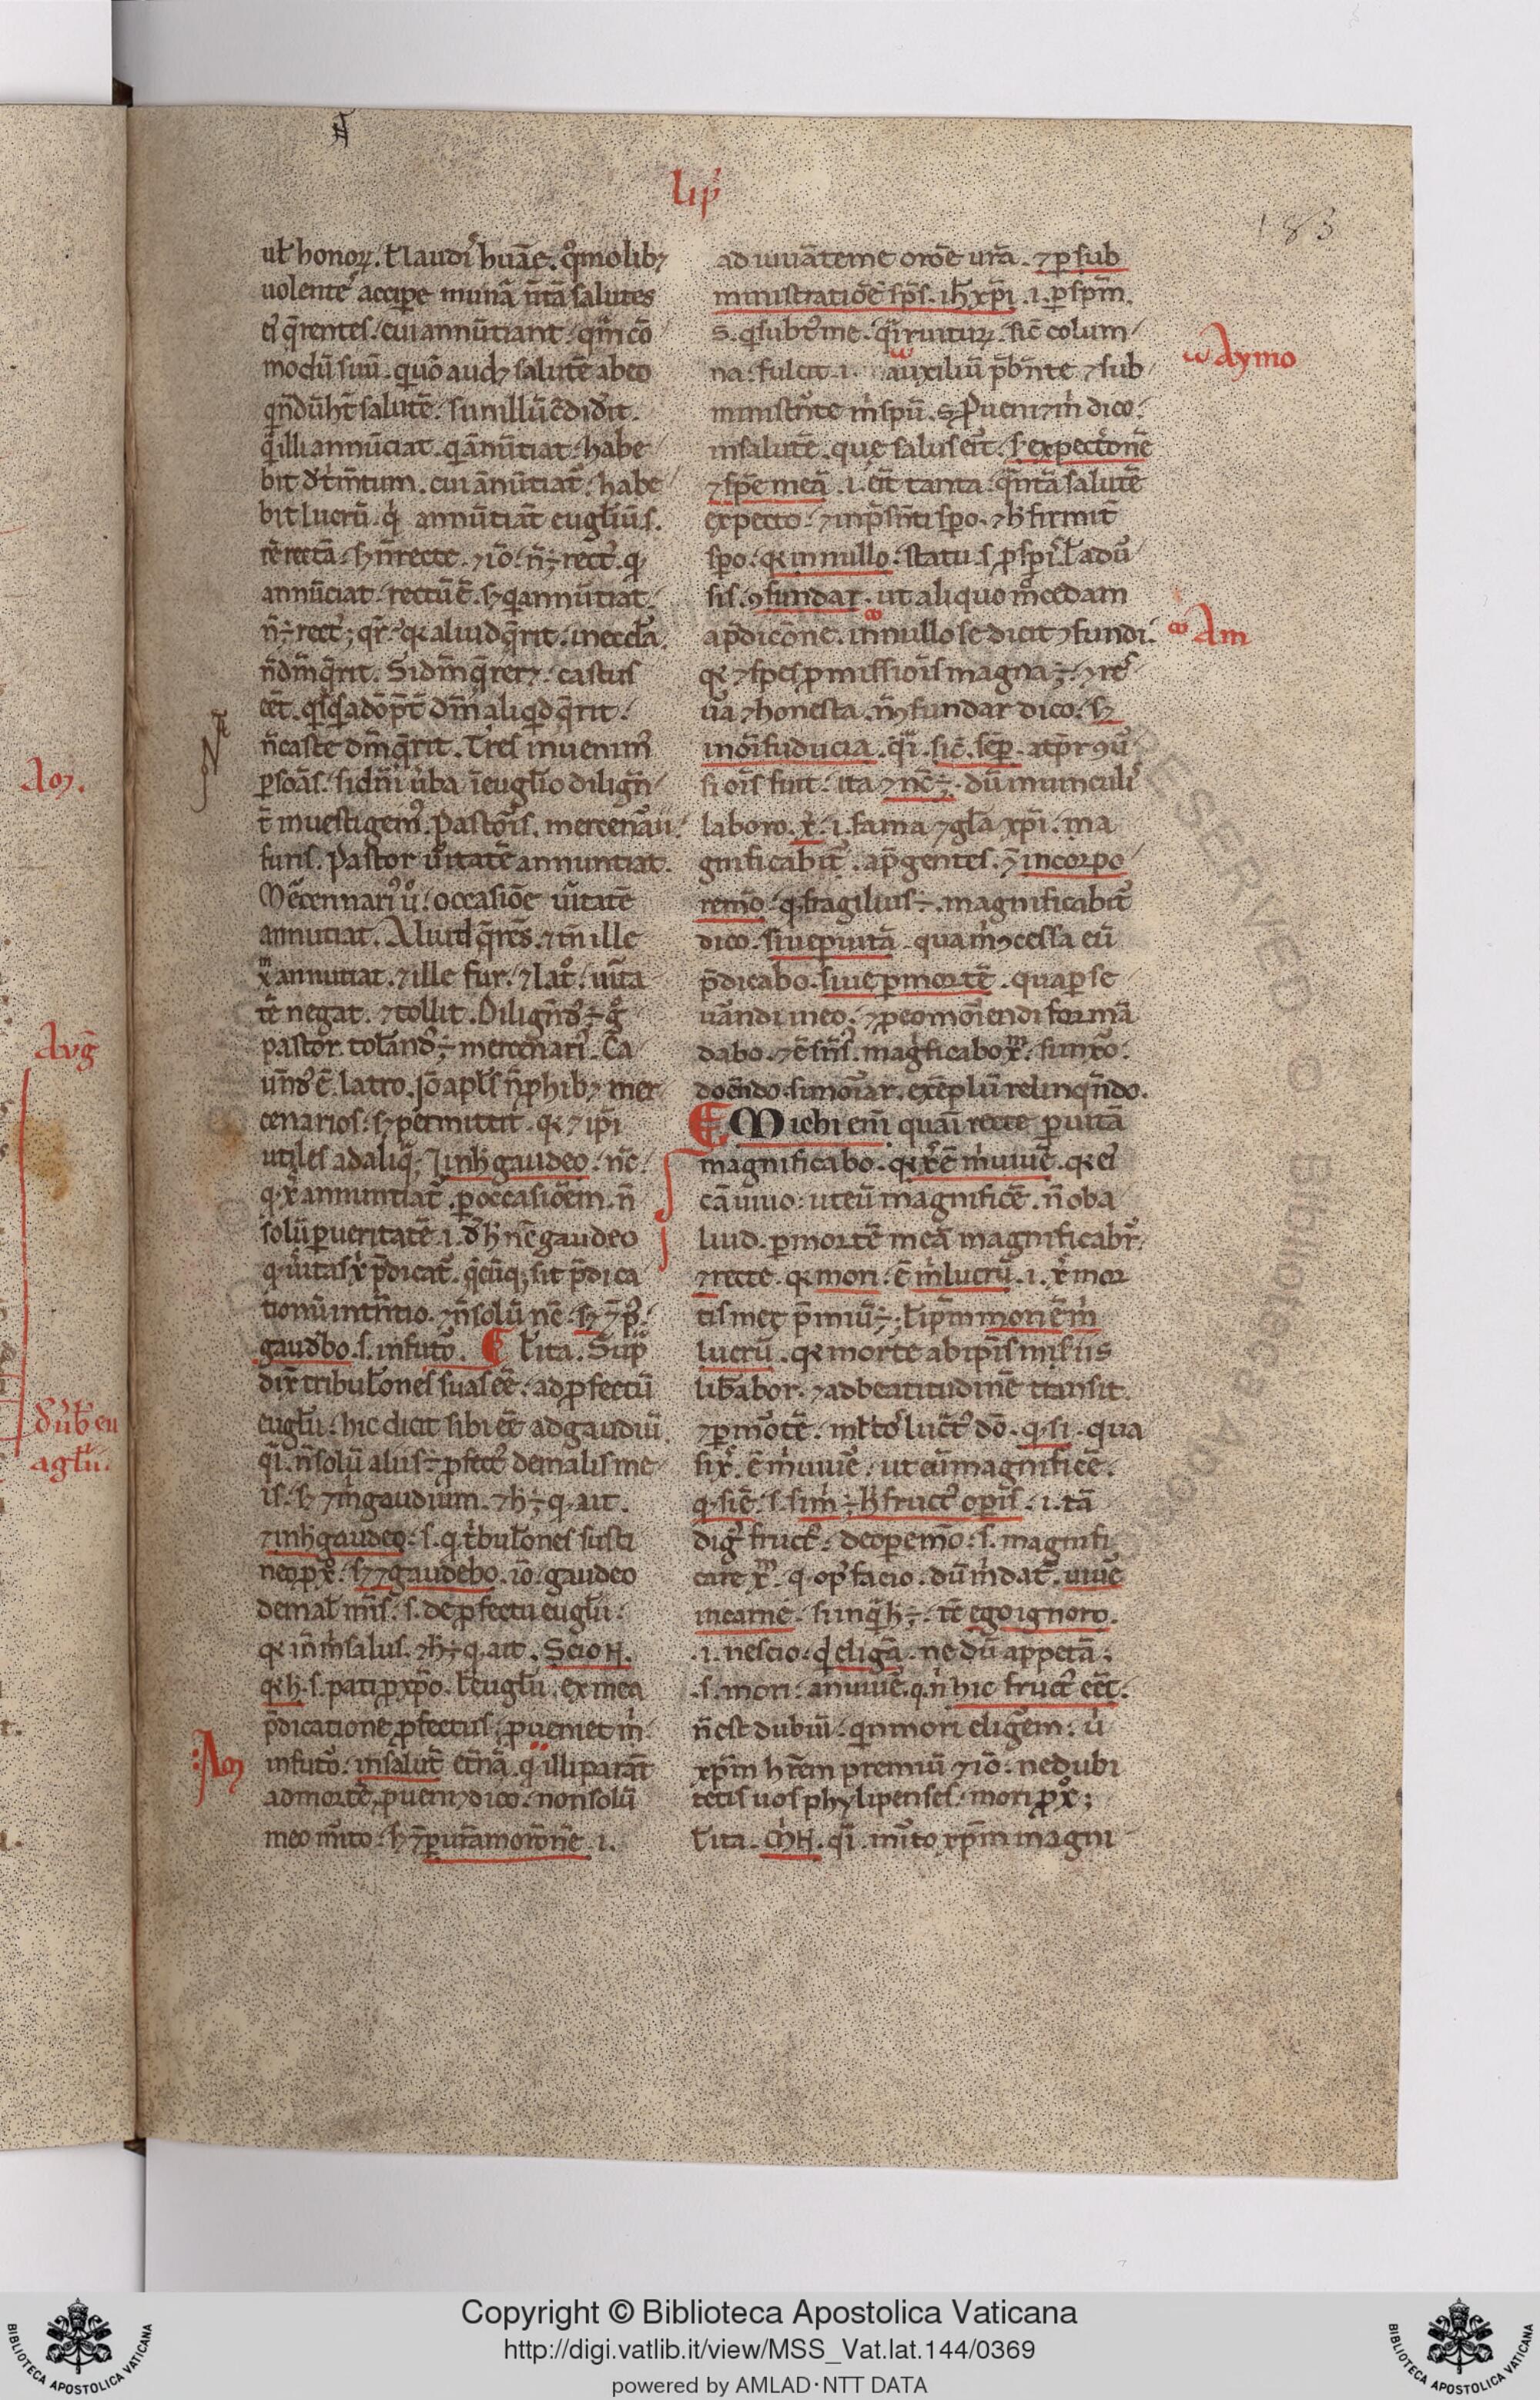 lip̄
183
ul̄ honoꝝ. ł laudis huāe. qͦmo libꝫ
uolentes accipe munā n̄tā salutes
ei q̄rentes. cui annūtiant. qm̄ cō
modū suū. quō audꝫ salutē ab eo
qn̄dū ht̄ salutē. si in illū c̄didit.
q̄ illi annūciat. q̄ ānūtiat. habe
bit dt̄m̄tum. cui ānūtiat̄. habe
bit lucrū. qͥ annūtiāt eugl̄iū. s.
rē rectā. sꝫ n̄ recte. ⁊ iō. n̄ ÷ rectꝰ. q
annūciat. rectū ē. sꝫ q annūtiat.
n̄ ÷ rectꝰ; qr̄. qꝛ aliud q̄rit. in eccl̄a.
n̄ dm̄ q̄rit. Si dm̄ q̄reret. castus
eēt. qͥsqͥs a dō p̄t̄ dm̄ aliqͥd q̄rit.
n̄ caste dm̄ q̄rit. Tres inuenimꝰ
ꝑsoās. si dn̄i uba ī eugl̄io dilign̄
t̄ inuestigemꝰ. pastoris. mercenarii.
furis. Pastor ūitatē annuntiat.
Mercennariꝰ ū. occasiōe ūitatē
annūtiat. Aliud q̄rēs. ⁊ tn̄ ille
xm̄ annūtiat. ⁊ ille fur. ⁊ latͦ. uīta
tē negat. ⁊ tollit. Diligēdꝰ ÷ gͦ
pastor. tol̄andꝰ ÷ mercenariꝰ. Ca
uēdꝰ ē latro. Iō apl̄s n̄ ꝓhibꝫ mer
cenarios. sꝫ permittit. qꝛ ⁊ ip̄i
utiles ad aliq̄. I in h̄ gaudeo. nc̄.
q. xͬ annuntiat̄. ꝑ occasiōem. n̄
solū ꝑ ueritatē .i. d̄ h̄ nc̄ gaudeo
q. ūitas xͥ p̄dicat̄. qͥcūqꝫ sit p̄dica
tionū intn̄tio. ⁊ n̄ solū nc̄. sꝫ ⁊ p̄ꝰ.
gaudbo. s. in futo. l̄ ita. Sup̄
dix̄ tribul̄ones suas eē. ad ꝓfectū
eugl̄ii. hic dicit sibi eē ad gaudiū.
qī. n̄ solū aliis ÷ ꝓfectꝰ de malis me
is. sꝫ ⁊ m̄ gaudium. ⁊ h̄ ÷ q. ait.
⁊ in h̄ gaudeo. s. q. tͥbul̄ones susti
neo ꝓ xͦ. sꝫ ⁊ gaudebo. iō. gaudeo
de mal̄ m̄is. s. de ꝓfectu eugl̄ii.
qꝛ īn m̄ salus. ⁊ h̄ ÷ q. ait. Scio .N.
qꝛ h̄. s. pati ꝓ xp̄o. l̄ eugl̄ii. ex mea
p̄dicatione ꝓfectus. ꝓueniet m̄
in futō. in salutē et̄nā. q illi parāt
ad mortē. ꝓueniꝫ dico. non solū
meo mito. sꝫ ⁊ ꝑ urām orōnē. i.
adiuuāte me orōe ur̄a. ⁊ ꝑ sub
ministratiōē sp̄s. ih̄ xp̄i .i. ꝑ sp̄m.
s. q subt̄ me. q̄ īruituꝝ. sic̄ colum
na. fulcit .i. auxiliū p̄bn̄te. ⁊ sub
ministn̄te m̄ sp̄ū. s. Pueniꝫ m̄ dico.
in salutē. que salus erit. s. expectōnē
⁊ spē meā .i. eīt tanta. q̄ntā salutē
expecto. ⁊ in p̄sn̄ti spo. ⁊ h̄ firmit̄
spo. qꝛ in nullo. statu. s. ꝓspi. l̄ adū
sis. ꝯfundar. ut aliquo mͦ cedam
a p̄dicōne. in nullo se dicit ꝯfundi.
qꝛ ⁊ spes ꝓmissiōis magna ÷. ⁊ res
ūa ⁊ honesta. n̄ ꝯfundar dico. sꝫ
in oī fiducia. q̄i. sic̄. semꝑ. a tp̄r ꝯū
siōis fuit. ita ⁊ nc̄ ÷. dū in uinculis
laboro. xͬ. i. fama ⁊ gl̄a xp̄i. ma
gnificabit̄. ap̄ gentes. ⁊ in corpo
re mō. q fragilius ÷. magnificabit̄
dico. siue ꝑ uitā. qua m̄ ꝯcessa eū
p̄dicabo. siue ꝑ mortē. qua ꝑ se
uāndi meo. ⁊ ꝑ eo moīendi formā
dabo. ⁊ ē sn̄sꝰ. magͥficabo xm̄. si uixͦo.
docēdo. si moriar. exēplū relinqn̄do.
Michi em̄ quām recte ꝑ uitā
magnificabo. qꝛ xͬ ē m̄ uiuē. qꝛ eiꝰ
cā uiuo. ut eū magnificē. n̄ ob a
liud. ꝑ mortē meā magnificabr̄.
⁊ recte. qꝛ mori. ē m̄ lucrū. i. xͬ mor
tis meę p̄miū ÷. l̄ ip̄m mori ē m̄
lucrū. qꝛ morte ab ip̄is miseriis
lib̄abor. ⁊ ad beatitudinē transit.
⁊ ꝑ mōtē. ml̄to luc̄t̄ꝰ dō. q. si. qua
si xͬ. ē m̄ uiuē. ut eū magnificē.
q. si c̄. s. si m̄ ÷ h̄ fructꝰ opis. i. tā
digͥ fructꝰ. de ope mō. s. magnifi
care xm̄. q. opꝰ facio. dū m̄ dat̄. uiuē
in carne. si inq̄ h̄ ÷. t̄c ego ignoro.
.i. nescio. qͥ eligā. ne dū appetā;
.s. mori. an uiuē. q. n̄ hic fructꝰ eēt.
n̄ est dubiū. qn mori eligem. ū
xp̄m h̄rēm premiū ⁊ iō. ne dubi
tetis uos phylipenses. mori ꝓ xͦ;
l̄ ita. M̄ .N. qī. mito xp̄m magni
Aymo
Am
Auḡ
aglū.
Copyright © Biblioteca Apostolica Vaticana
http://digi.vatlib.it/view/MSS_Vat.lat.144/0369
powered by AMLAD·NTT DATA
BIBLIOTECA APOSTOLICA VATICANA
BIBLIOTECA APOSTOLICA VATICANA